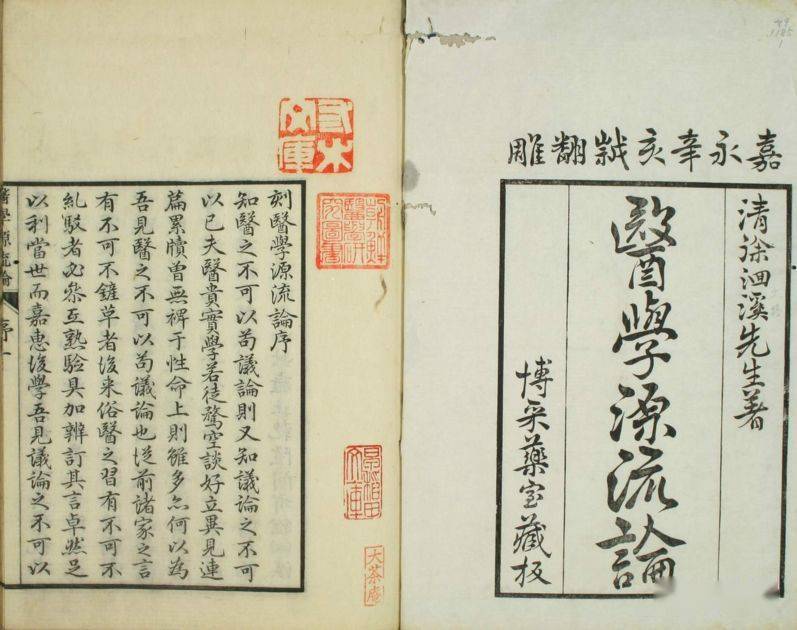 嘉永辛亥誂翻雕
清徐洄溪先生著
醫學源流論
博采藥室藏板
刻醫學源流論序
知醫之不可以苟議論則又知議論之不可
以已夫醫貴實學若徒騖空談好立異見連
篇累牘曾無裨于性命上則雖多亦何以為
吾見醫之不可以苟議論也从前諸家之言
有不可不鏟草者後来俗醫之習有不可不
糺駁者必叅互熟驗具加辨訂其言卓然足
以利當世而嘉惠後學吾見議論之不可以
醫學源流論
序一
朝鮮醫學研究圖書
大茶庵